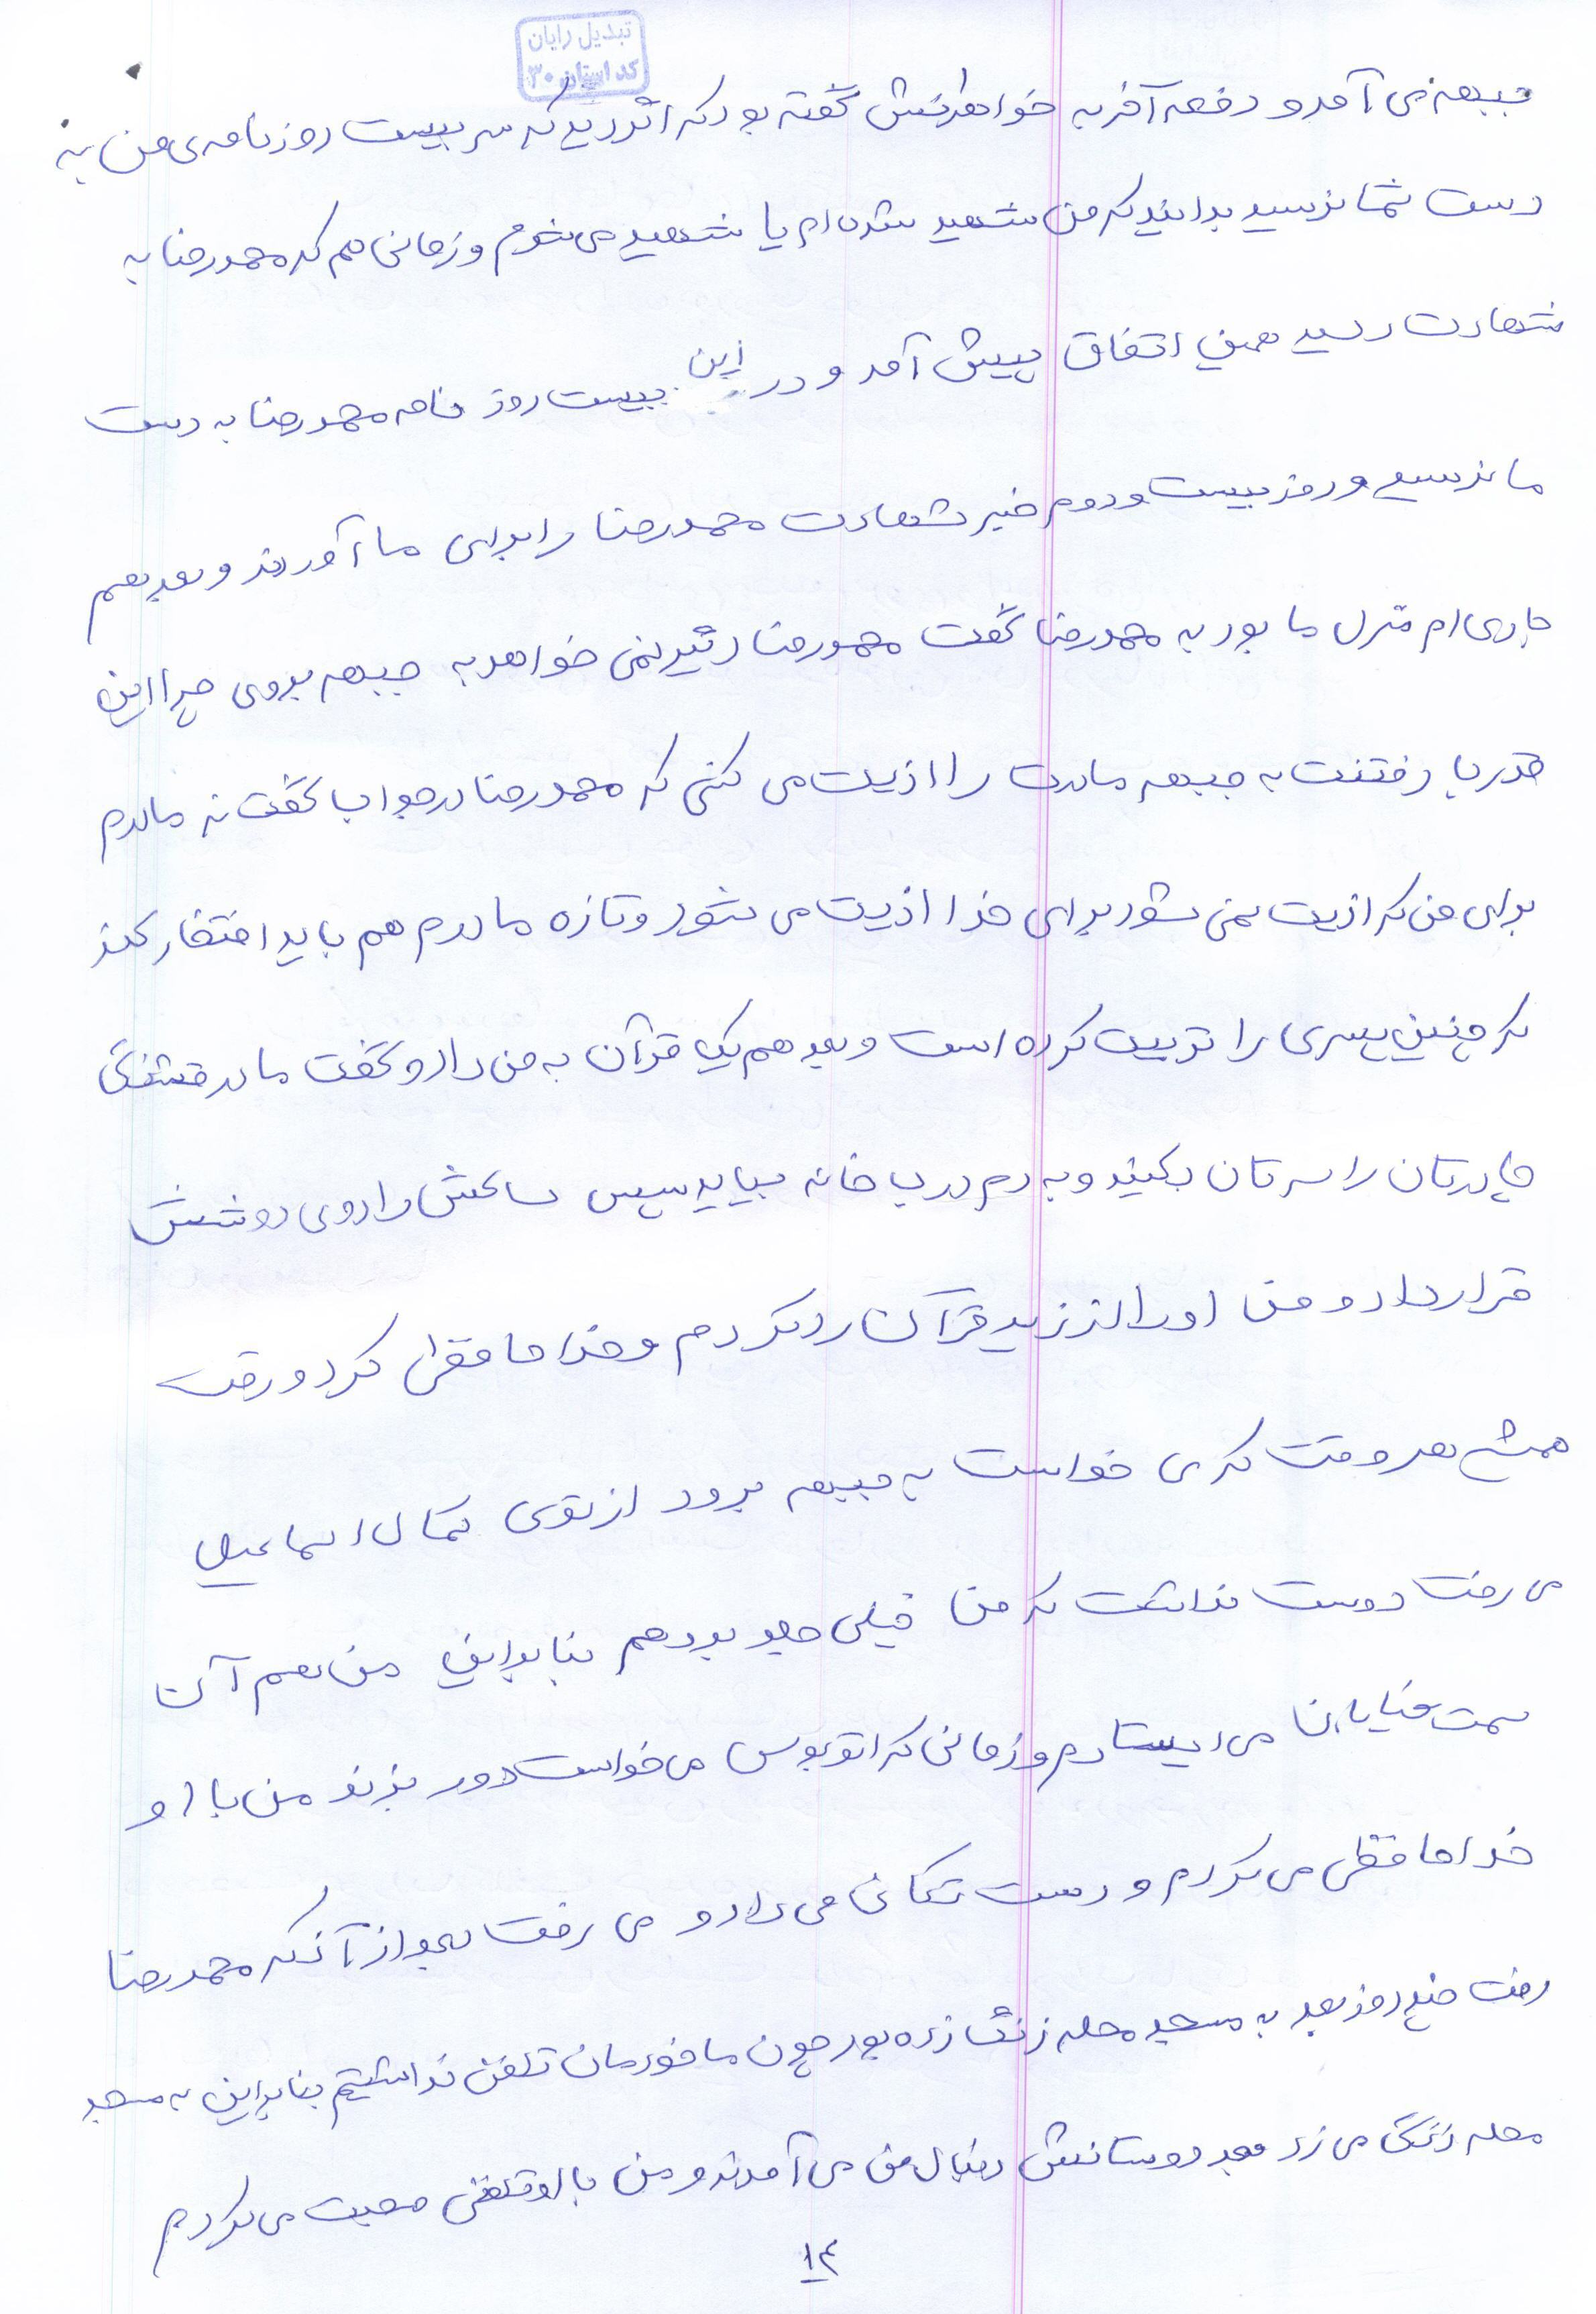 تبدیل رایان
کد استان ۳۰
جبهه می آمد و دفعه آخر به خواهرش گفته بود که اگر دیدید که سر بیست روز نامه ی من به
دست شما نرسید بدانید که من شهید شده ام یا شهید می شوم و زمانی هم که محمدرضا به
شهادت رسید همین اتفاق پیش آمد و در این بیست روز نامه محمدرضا به دست
ما نرسید و روز بیست و دوم خبر شهادت محمدرضا را برای ما آوردند و بعد هم
جاری ام منزل ما بود به محمدرضا گفت محمدرضا دیگر نمی خواهد به جبهه بروی چرا این
قدر با رفتنت به جبهه مادرت را اذیت می کنی که محمدرضا در جواب گفت نه مادرم
برای من که اذیت نمی شود برای خدا اذیت می شود و تازه مادرم هم باید افتخار کند
که چنین پسری را تربیت کرده است و بعد هم یک قرآن به من داد و گفت مادر قشنگ
چادرتان را سرتان بکنید و به دم درب خانه بیایید سپس ساکش را روی دوشش
قرار داد و من او را از زیر قرآن رد کردم و خداحافظی کرد و رفت
همیشه هر وقت که می خواست به جبهه برود از توی کمال اسماعیل
می رفت دوست نداشت که من خیلی جلو بروم بنابراین من هم آن
سمت خیابان می ایستادم و زمانی که اتوبوس می خواست دور بزند من با او
خداحافظی می کردم و دست تکان می داد و می رفت بعد از آنکه محمدرضا
رفت چند روز بعد به مسجد محله زنگ زده بود چون ما خودمان تلفن نداشتیم بنابراین به مسجد
محله زنگ می زد بعد دوستانش دنبال من می آمدند و من با او تلفنی صحبت می کردم
۱۴